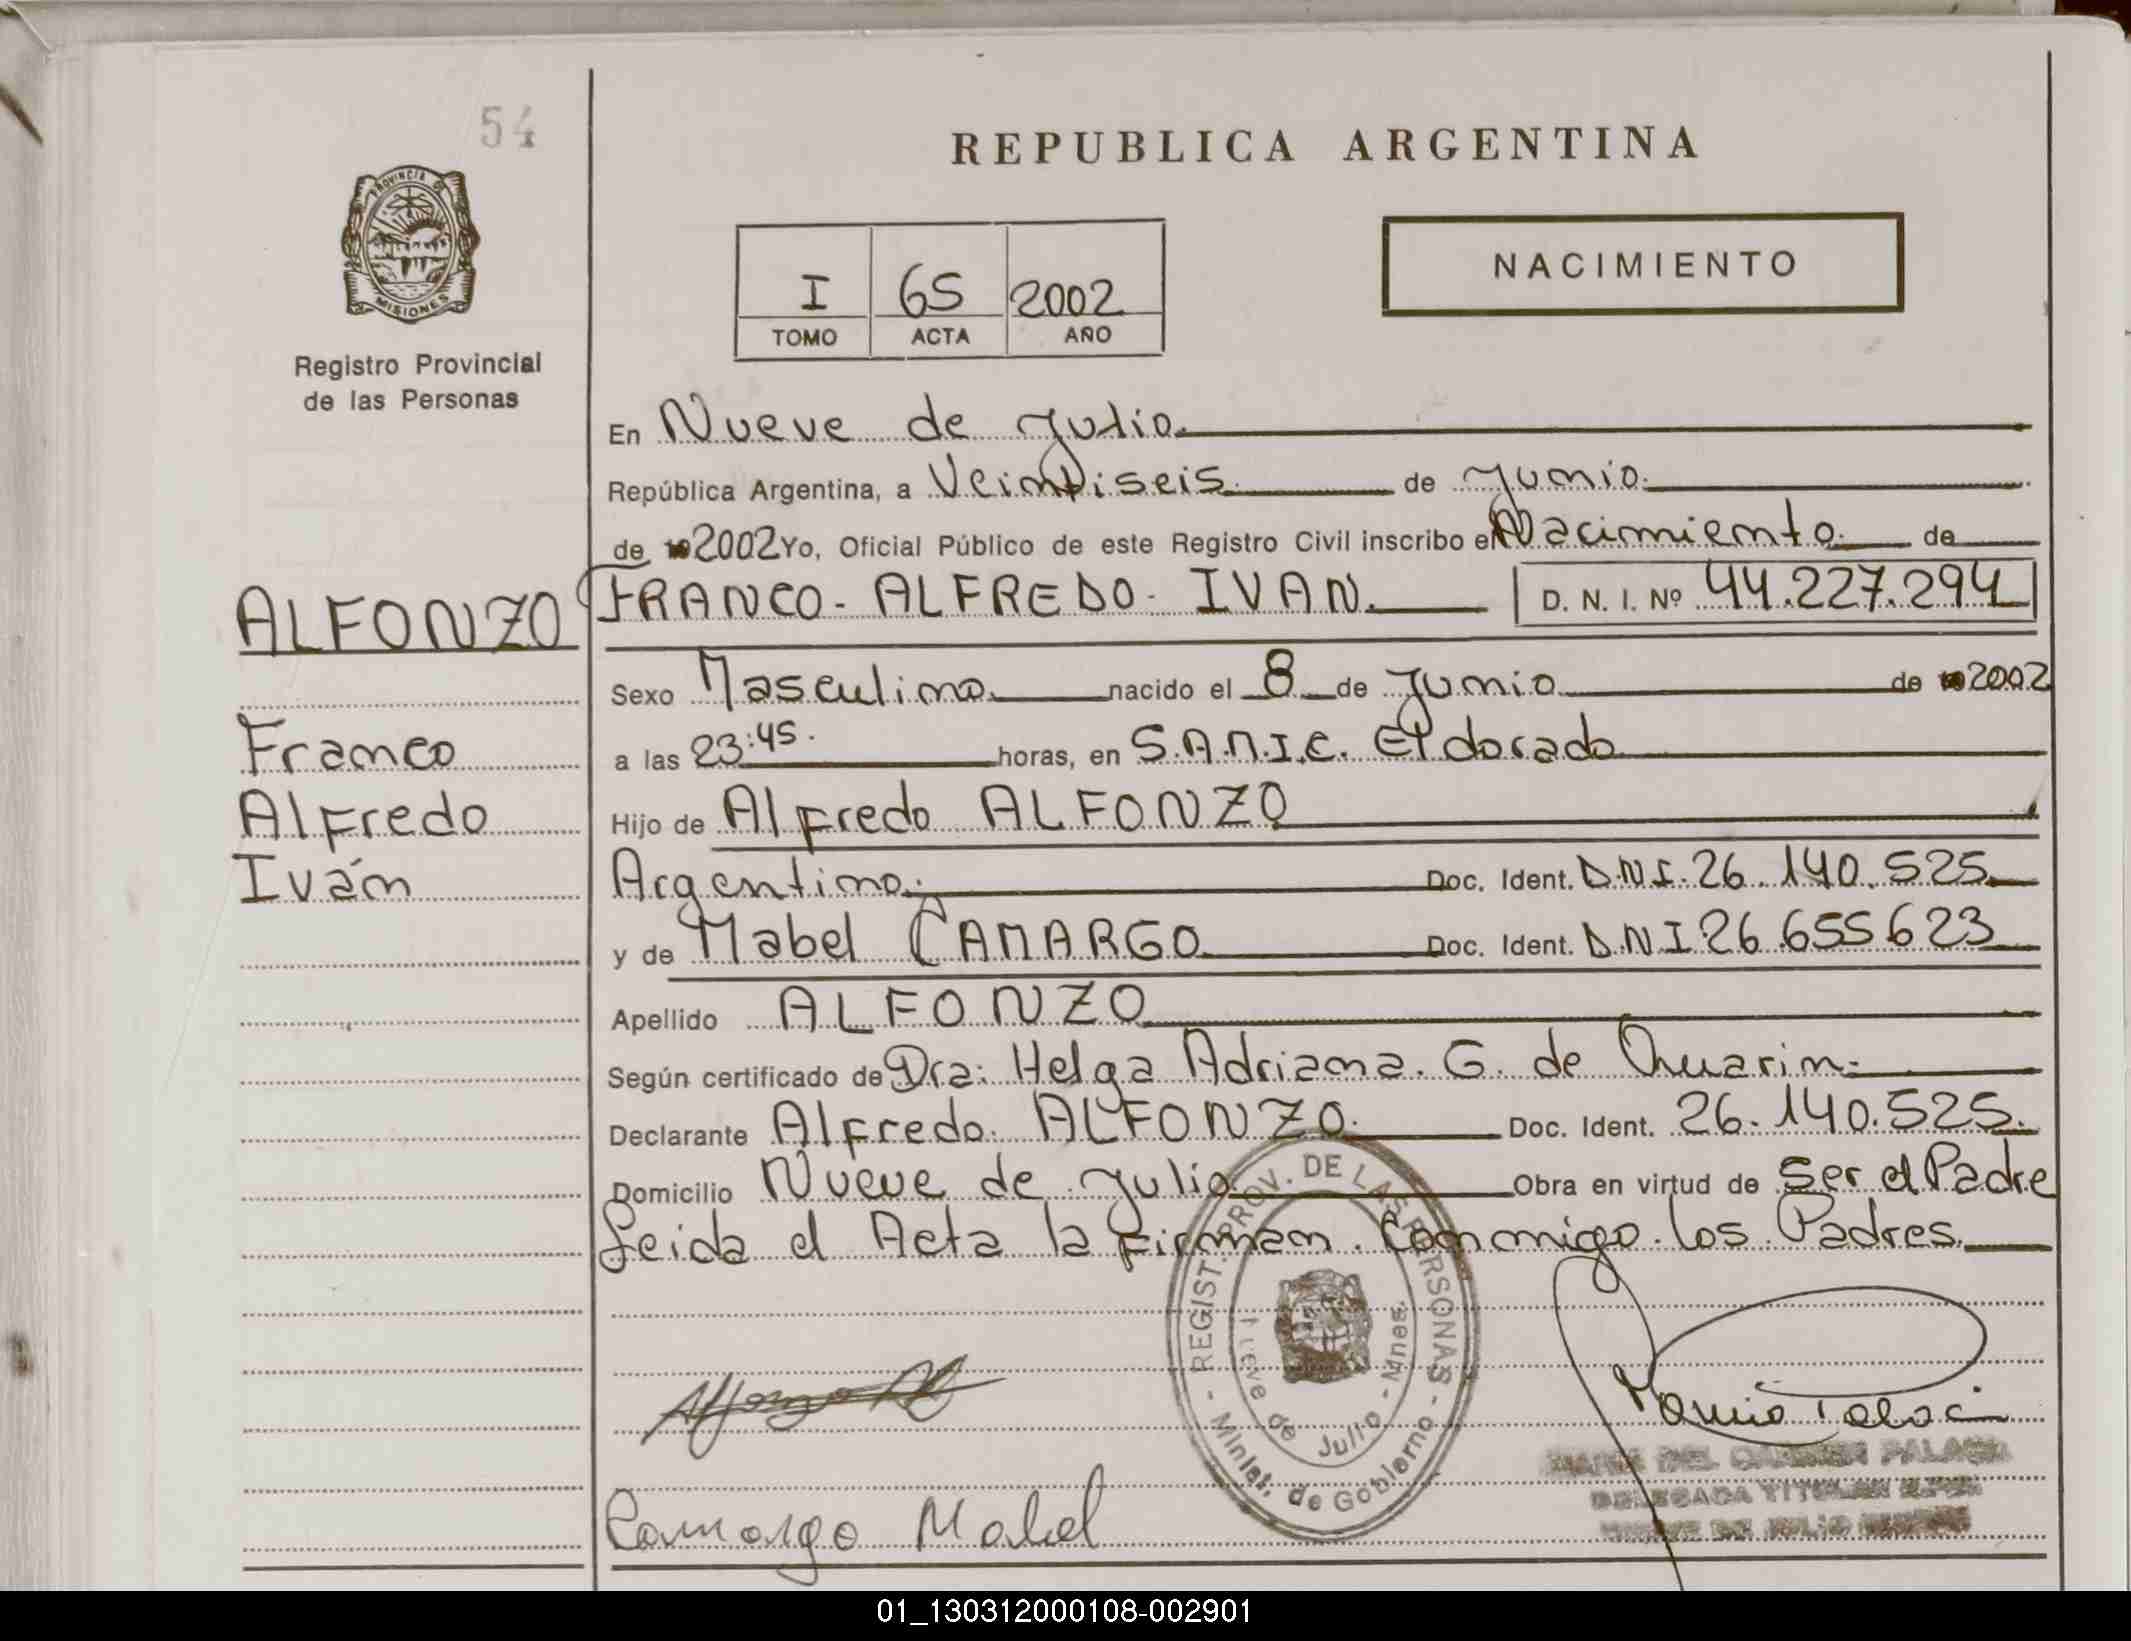 54
REPUBLICA ARGENTINA
PROVINCIA DE
MISIONES
Registro Provincial
de las Personas
I 65 2002
TOMO ACTA AÑO
NACIMIENTO
En Nueve de Julio.
República Argentina, a Veintiseis de Junio.
de 2002 Yo, Oficial Público de este Registro Civil inscribo el Nacimiento. de
ALFONZO FRANCO- ALFREDO- IVAN. D. N. I. Nº 44.227.294
Sexo Masculino. nacido el 8 de Junio de 2002
Franco
a las 23:45. horas, en S.A.M.I.C. Eldorado
Alfredo
Hijo de Alfredo ALFONZO
Iván
Argentino. Doc. Ident. D.N.I. 26.140.525
y de Mabel CAMARGO Doc. Ident. D.N.I 26.655623
Apellido ALFONZO
Según certificado de Dra: Helga Adriana. G. de
Declarante Alfredo. ALFONZO. Doc. Ident. 26.140.525.
Domicilio Nueve de Julio. Obra en virtud de Ser el Padre
Leida el Acta la Firman. Conmigo. los Padres.
- REGIST. PROV. DE LAS PERSONAS -
Minist. de Gobierno
Nueve de Julio - Mnes.
Camargo Mabel
MARIA DEL CARMEN PALACIO
DELEGADA TITULAR
NUEVE DE JULIO
01_130312000108-002901